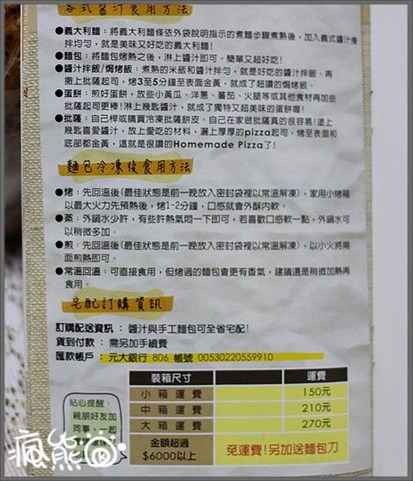 各式醬汁食用方法
●義大利麵：將義大利麵條依外袋說明指示的煮麵步驟煮熟後，加入義式醬汁攪
拌均勻，就是美味又好吃的義大利麵！
●麵包：將麵包烤熱之後，淋上醬汁即可。簡單又超好吃！
●醬汁拌飯/焗烤飯：煮熟的米飯和醬汁拌勻，就是好吃的醬汁拌飯。再
撒上批薩起司，烤3至5分鐘至表面金黃，就成了超讚的焗烤飯。
●蛋餅：煎好蛋餅，放些小黃瓜、洋蔥、蕃茄、火腿等或其他食材再加些
批薩起司更棒！淋上幾匙醬汁，就成了獨特又超美味的蛋餅喔！
●批薩：自己桿或購買冷凍批薩餅皮。自己在家做批薩真的很容易！塗上
幾匙喜愛醬汁，放上愛吃的材料，灑上厚厚的pizza起司，烤至表面和
底部都金黃，這就是很讚的Homemade Pizza了！
麵包冷凍後食用方法
●烤：先回溫後(最佳狀態是前一晚放入密封袋裡以常溫解凍)，家用小烤箱
以最大火力先預熱後，烤1-2分鐘，口感就會外酥內軟。
●蒸：外鍋水少許，有些許熱氣悶一下即可，若喜歡口感軟一點，外鍋水可
以稍微多加。
●煎：先回溫後(最佳狀態是前一晚放入密封袋裡以常溫解凍)，以小火將兩
面煎熱即可。
●常溫回溫：可直接食用，但烤過的麵包會更有香氣，建議還是稍微加熱再
食用。
宅配訂購資訊
訂購配送資訊：醬汁與手工麵包可全省宅配！
貨到付款：需另加手續費
匯款帳戶：元大銀行 806 帳號 00530220559910
裝箱尺寸 運費
小箱運費 150元
中箱運費 210元
大箱運費 270元
金額超過
$6000以上 免運費！另加送麵包刀
貼心提醒：
親朋好友加
同事，一起
瘋熊窩